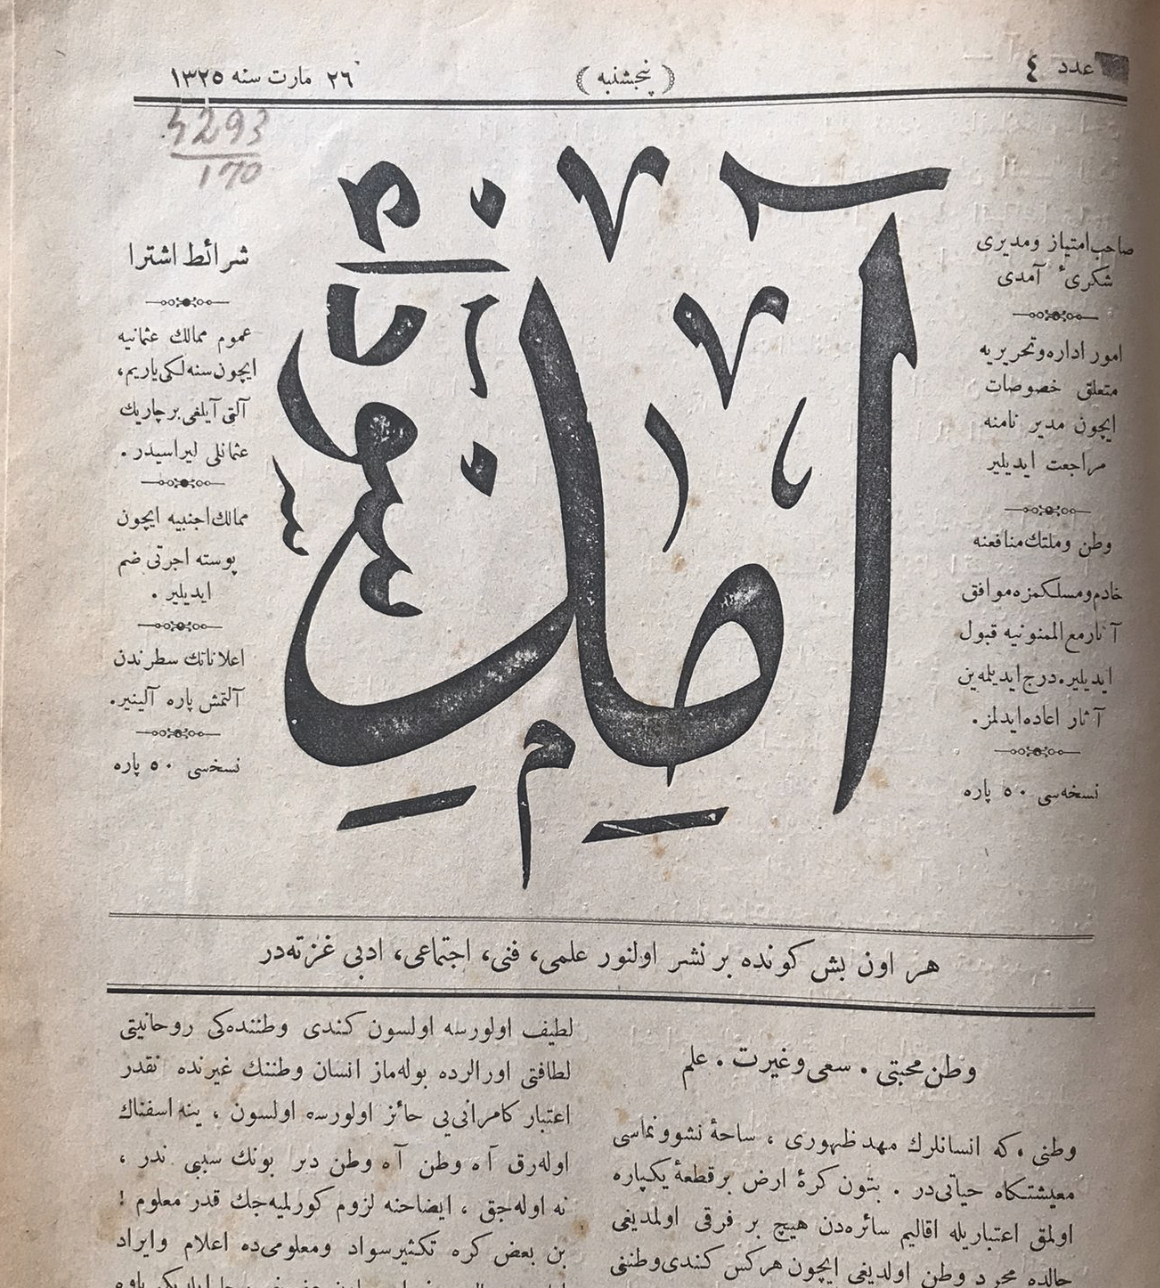 عدد ٤
﴿ پنجشنبه ﴾
٢٦ مارت سنه ١٣٢٥
4293
170
صاحب امتیاز و مدیری
شکری ٔ آمدی
امور اداره و تحریریه
متعلق خصوصات
ایچون مدیر نامنه
مراجعت ایدیلیر
وطن و ملتك منافعنه
خادم و مسلکمزه موافق
آثار مع الممنونیه قبول
ایدیلیر. درج ایدیلمه‌ین
آثار اعاده ایدلمز.
نسخه‌سی ٥٠ پاره
شرائط اشترا
عموم ممالك عثمانیه
ایچون سنه‌لكی یاریم،
آلتی آیلغی بر چاریك
عثمانلی لیراسیدر.
ممالك اجنبیه ایچون
پوسته اجرتی ضم
ایدیلیر.
اعلاناتك سطرندن
آلتمش پاره آلینیر.
نسخسی ٥٠ پاره
هر اون بش کونده بر نشر اولنور علمی، فنی، اجتماعی، ادبی غزته‌در
وطن محبتی . سعی و غیرت . علم
وطنی، که انسانلرك مهد ظهوری ، ساحهٔ نشوونماسی
معیشتکاه حیاتی‌در . بتون کرهٔ ارض بر قطعهٔ یکپاره
اولمق اعتباریله اقالیم سائره‌دن هیچ بر فرقی اولمدیغی
حالده مجرد وطن اولدیغی ایچون هرکس کندی وطننی
لطیف اولورسه اولسون کندی وطننده‌کی روحانیتی
لطافتی اورالرده بوله‌ماز انسان وطننك غیرنده نقدر
اعتبار کامرانی‌یی حائز اولورسه اولسون ، ینه اسفناك
اوله‌رق آه وطن آه وطن دیر بونك سببی ندر ،
نه اوله‌جق ، ایضاحنه لزوم کورلمیه‌جك قدر معلوم !
بن بعض کره تکثیر سواد ومعلومی‌ده اعلام وایراد